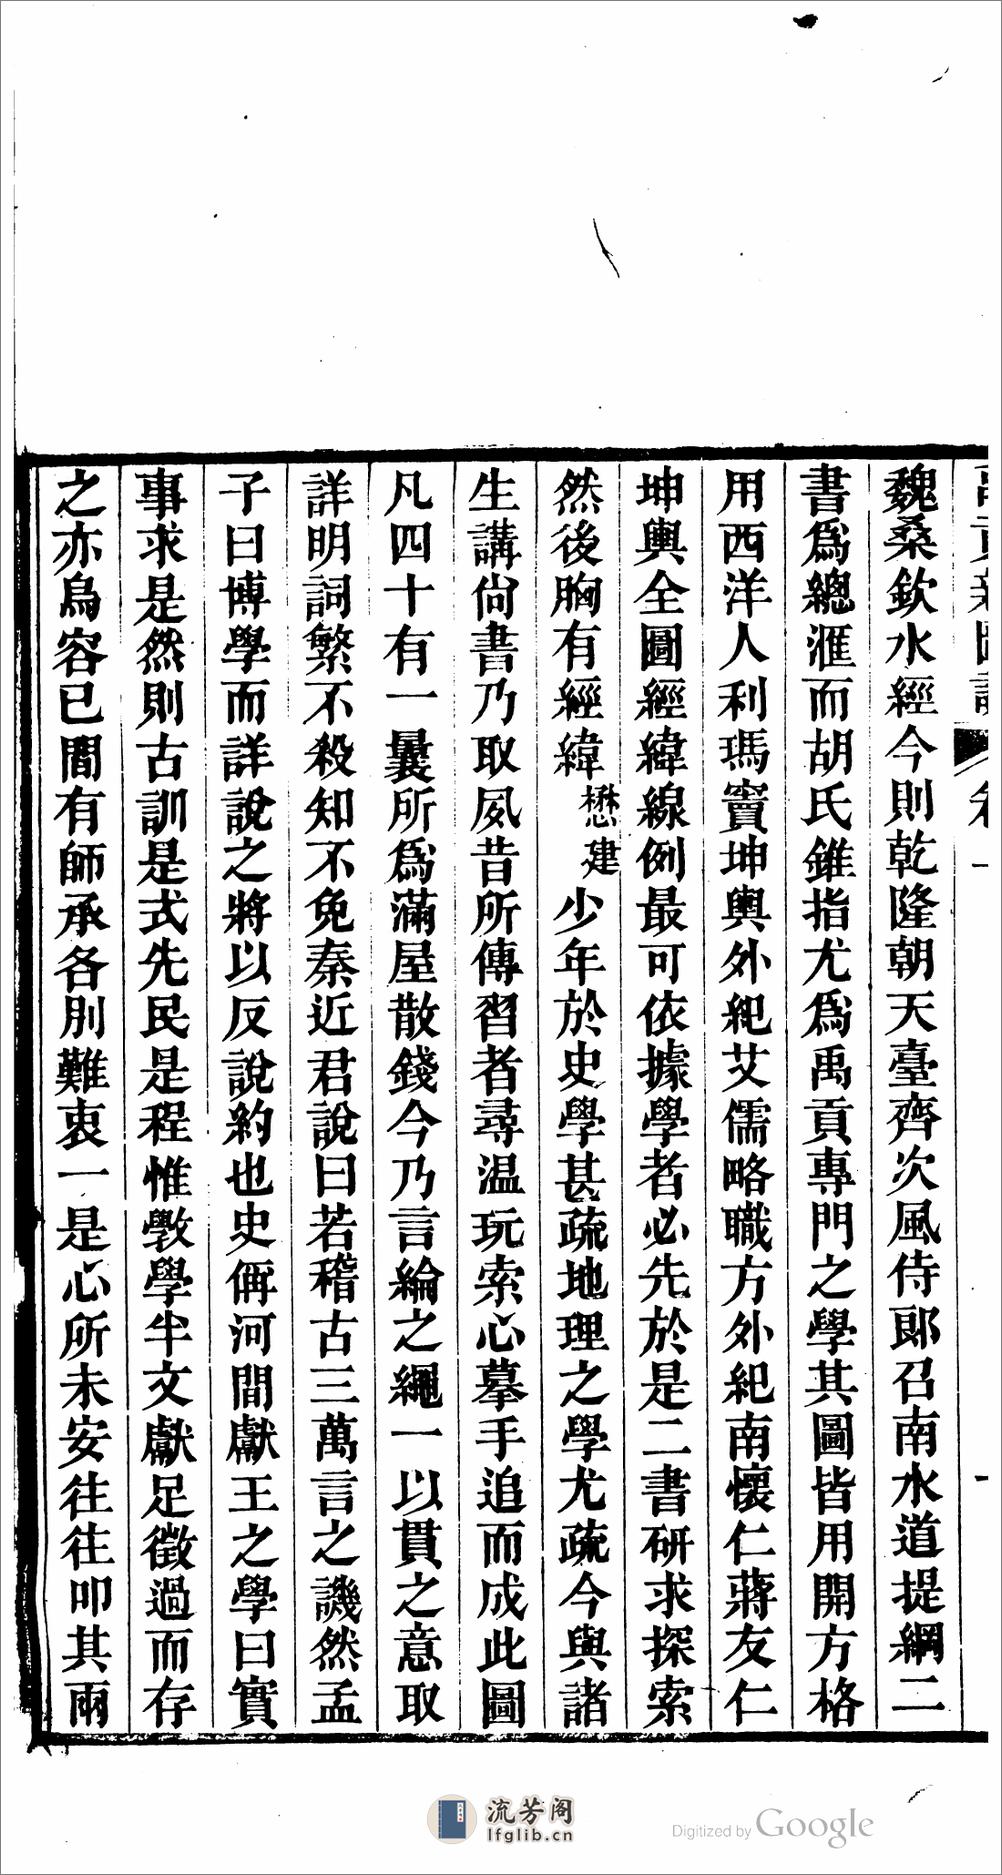 禹貢新圖說 卷一 一
魏桑欽水經今則乾隆朝天臺齊次風侍郎召南水道提綱二
書爲總滙而胡氏錐指尤爲禹貢專門之學其圖皆用開方格
用西洋人利瑪竇坤輿外紀艾儒略職方外紀南懷仁蔣友仁
坤輿全圖經緯線例最可依據學者必先於是二書研求探索
然後胸有經緯懋建少年於史學甚疏地理之學尤疏今與諸
生講尙書乃取夙昔所傳習者尋温玩索心摹手追而成此圖
凡四十有一曩所爲滿屋散錢今乃言綸之繩一以貫之意取
詳明詞繁不殺知不免秦近君說曰若稽古三萬言之譏然孟
子曰博學而詳說之將以反說約也史偁河間獻王之學曰實
事求是然則古訓是式先民是程惟斆學半文獻足徵過而存
之亦烏容已閒有師承各別難衷一是心所未安往往叩其兩
流芳阁
lfglib.cn
Digitized by Google